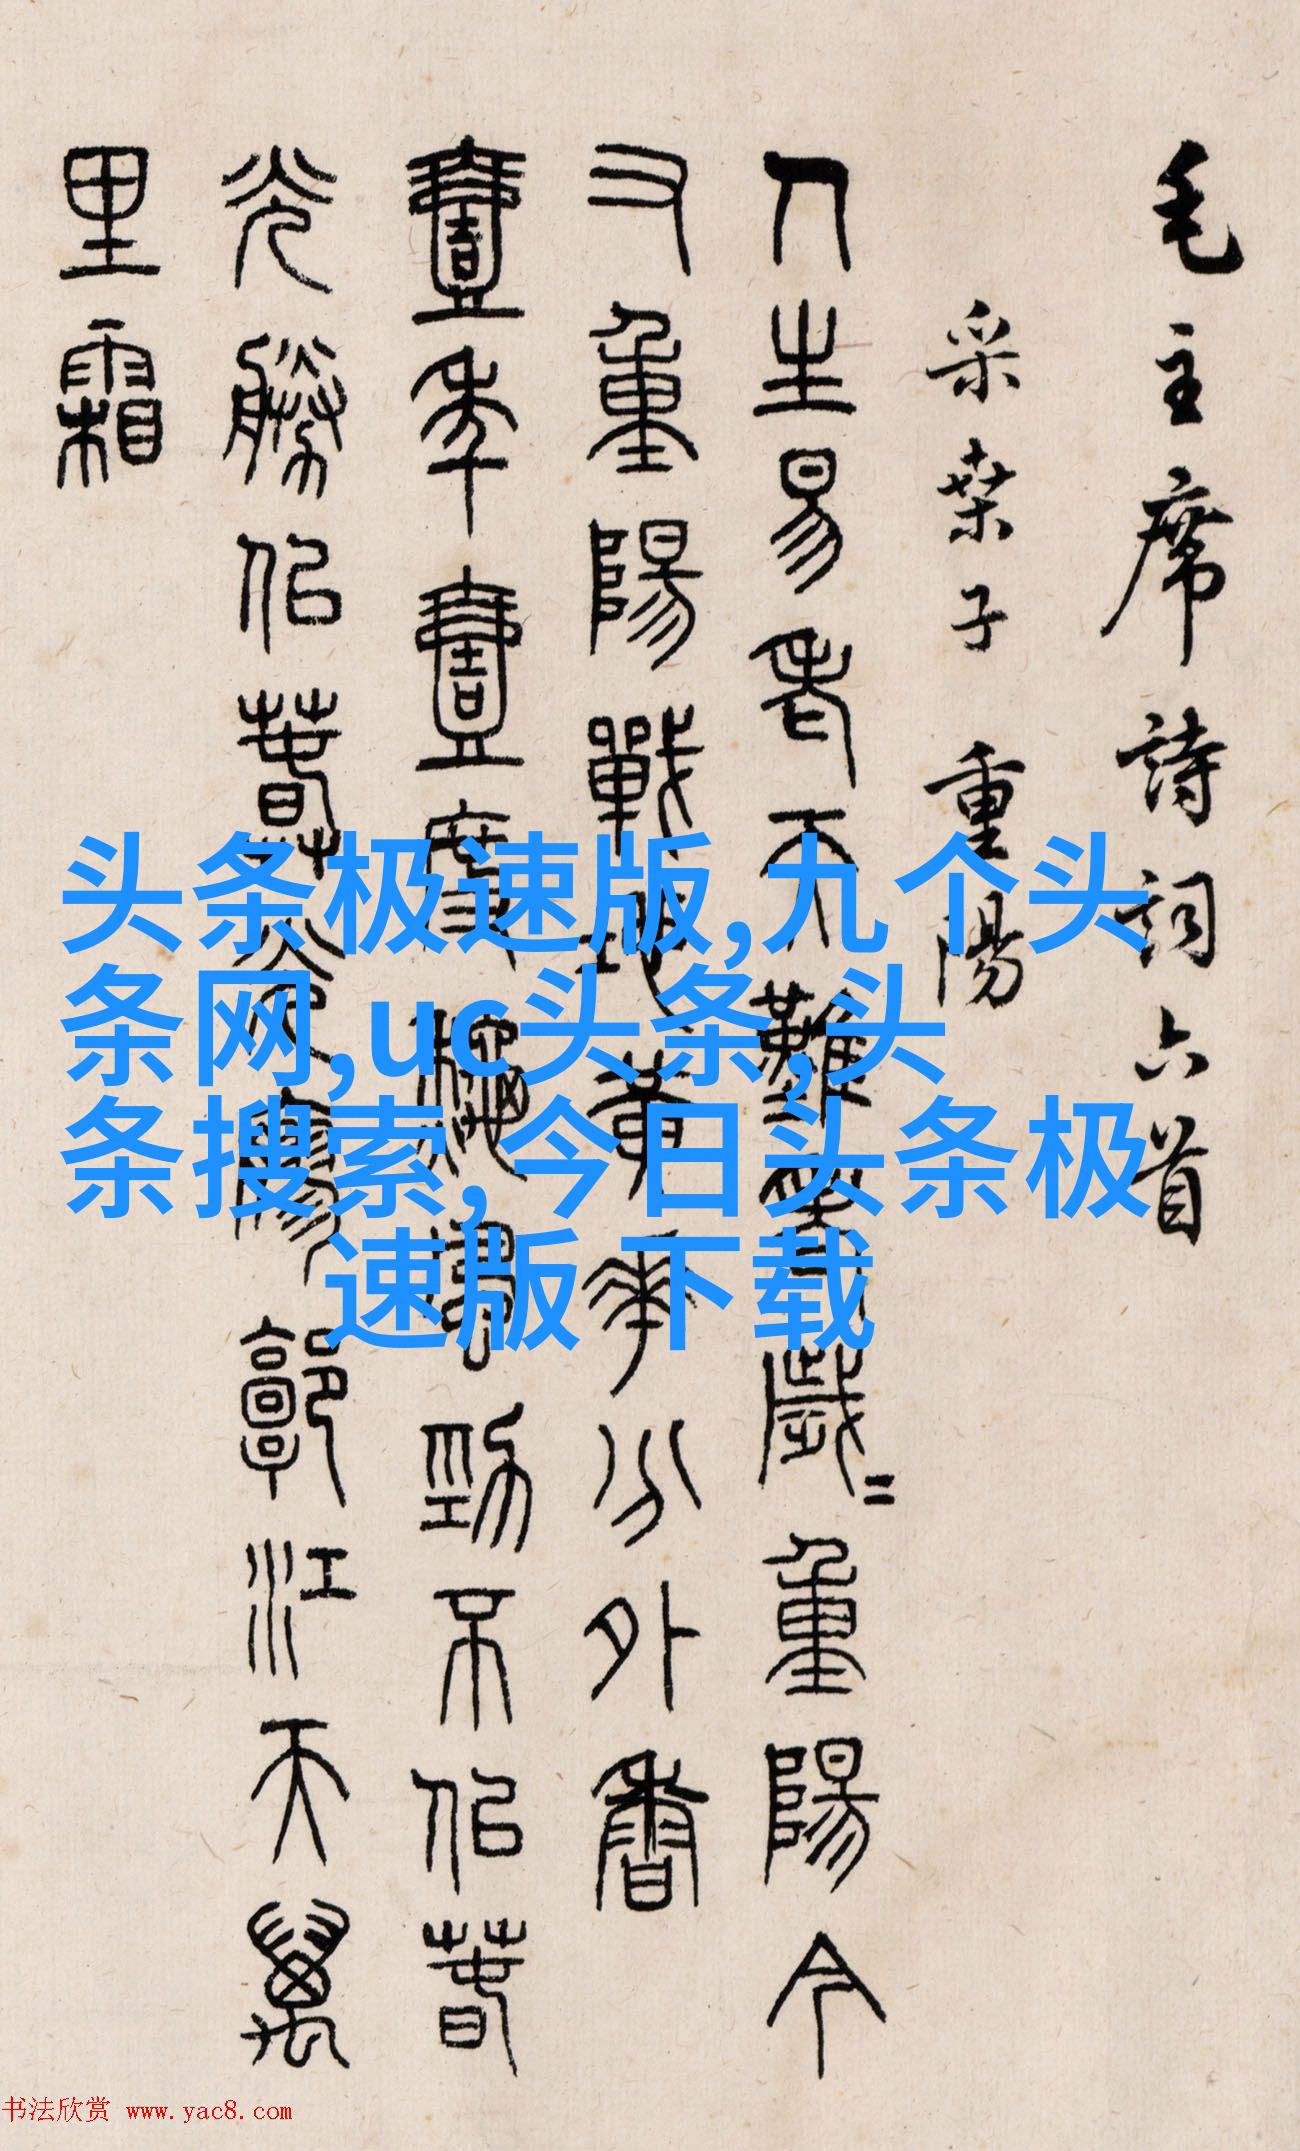 毛主席詩詞六首
采桑子 重陽
人生易老天難老歲〻重陽今
又重陽戰地黄華分外香
壹年壹度秋風勁不佀春
光勝佀春光寥郭江天萬
里霜
头条极速版,九个头
条网,uc头条,头
条搜索,今日头条极
速版 下载
书法欣赏 www.yac8.com